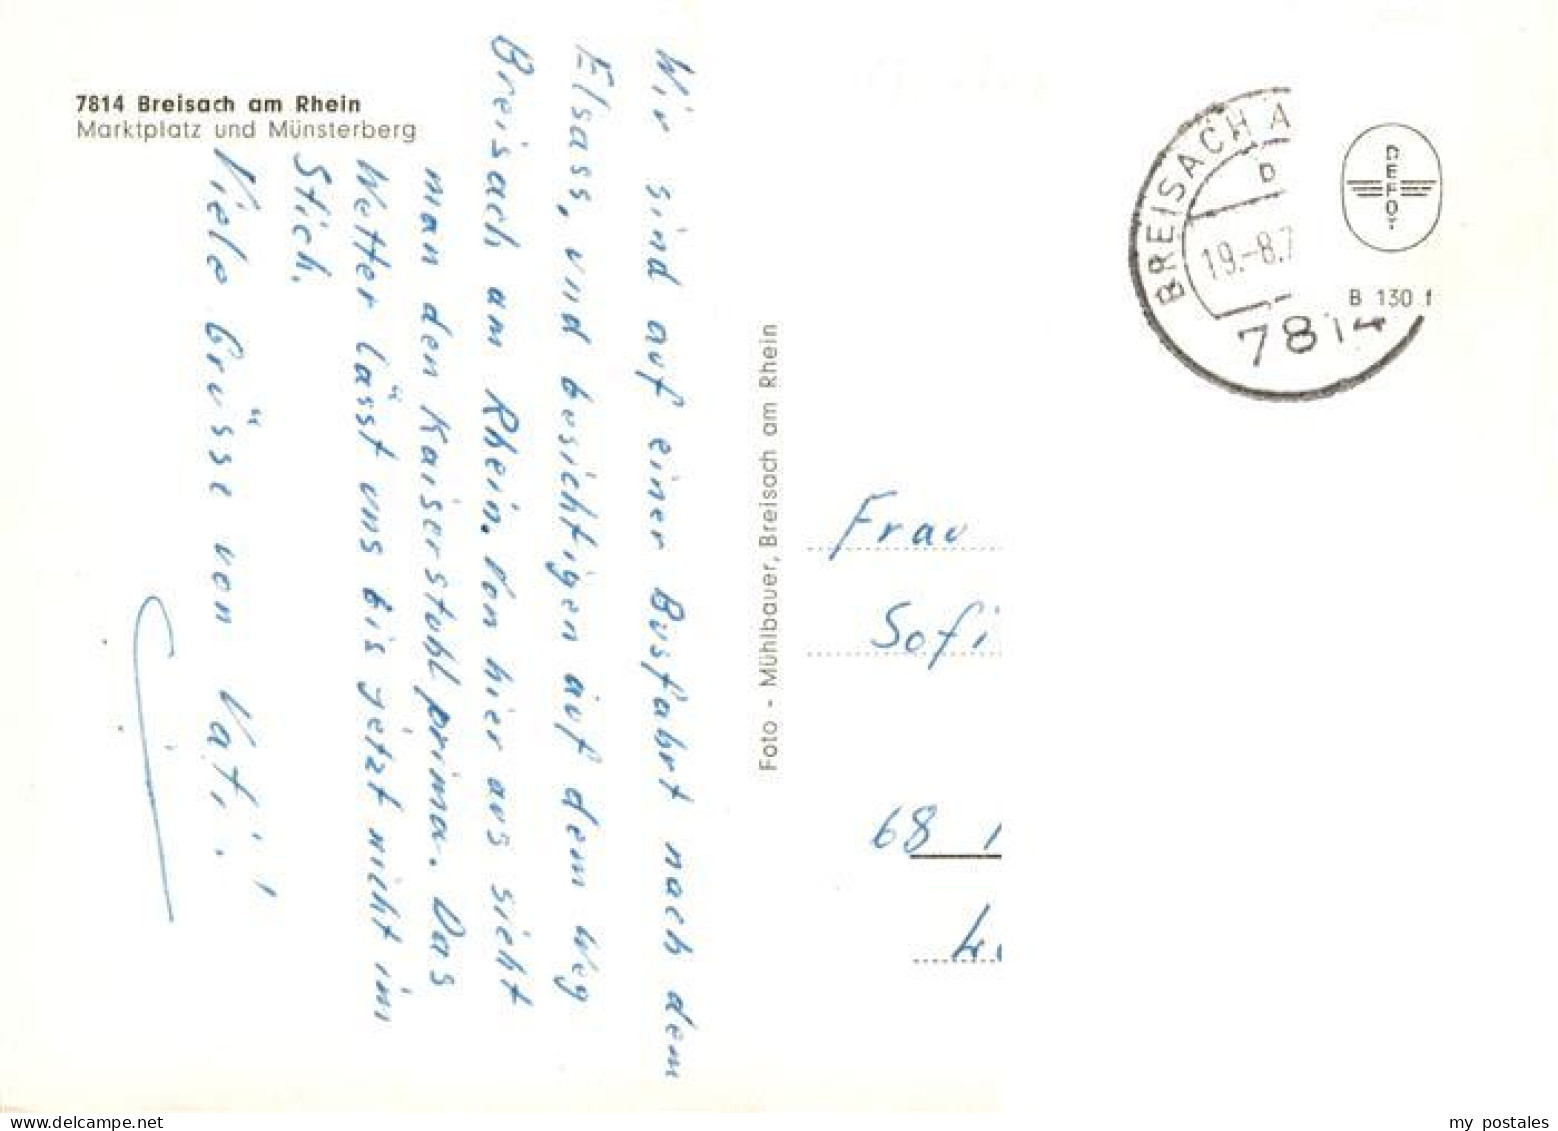 7814 Breisach am Rhein
Marktplatz und Münsterberg
Wir sind auf einer Busfahrt nach dem
Elsass, und besichtigen auf dem Weg
Breisach am Rhein. Von hier aus sieht
man den Kaiserstuhl prima. Das
Wetter lässt uns bis jetzt nicht im
Stich.
Viele Grüsse von Vati!
Foto - Mühlbauer, Breisach am Rhein
BREISACH A
b
19.-8.7
7814
DEFOT
B 130 f
Frau
Sofi
68
my postales